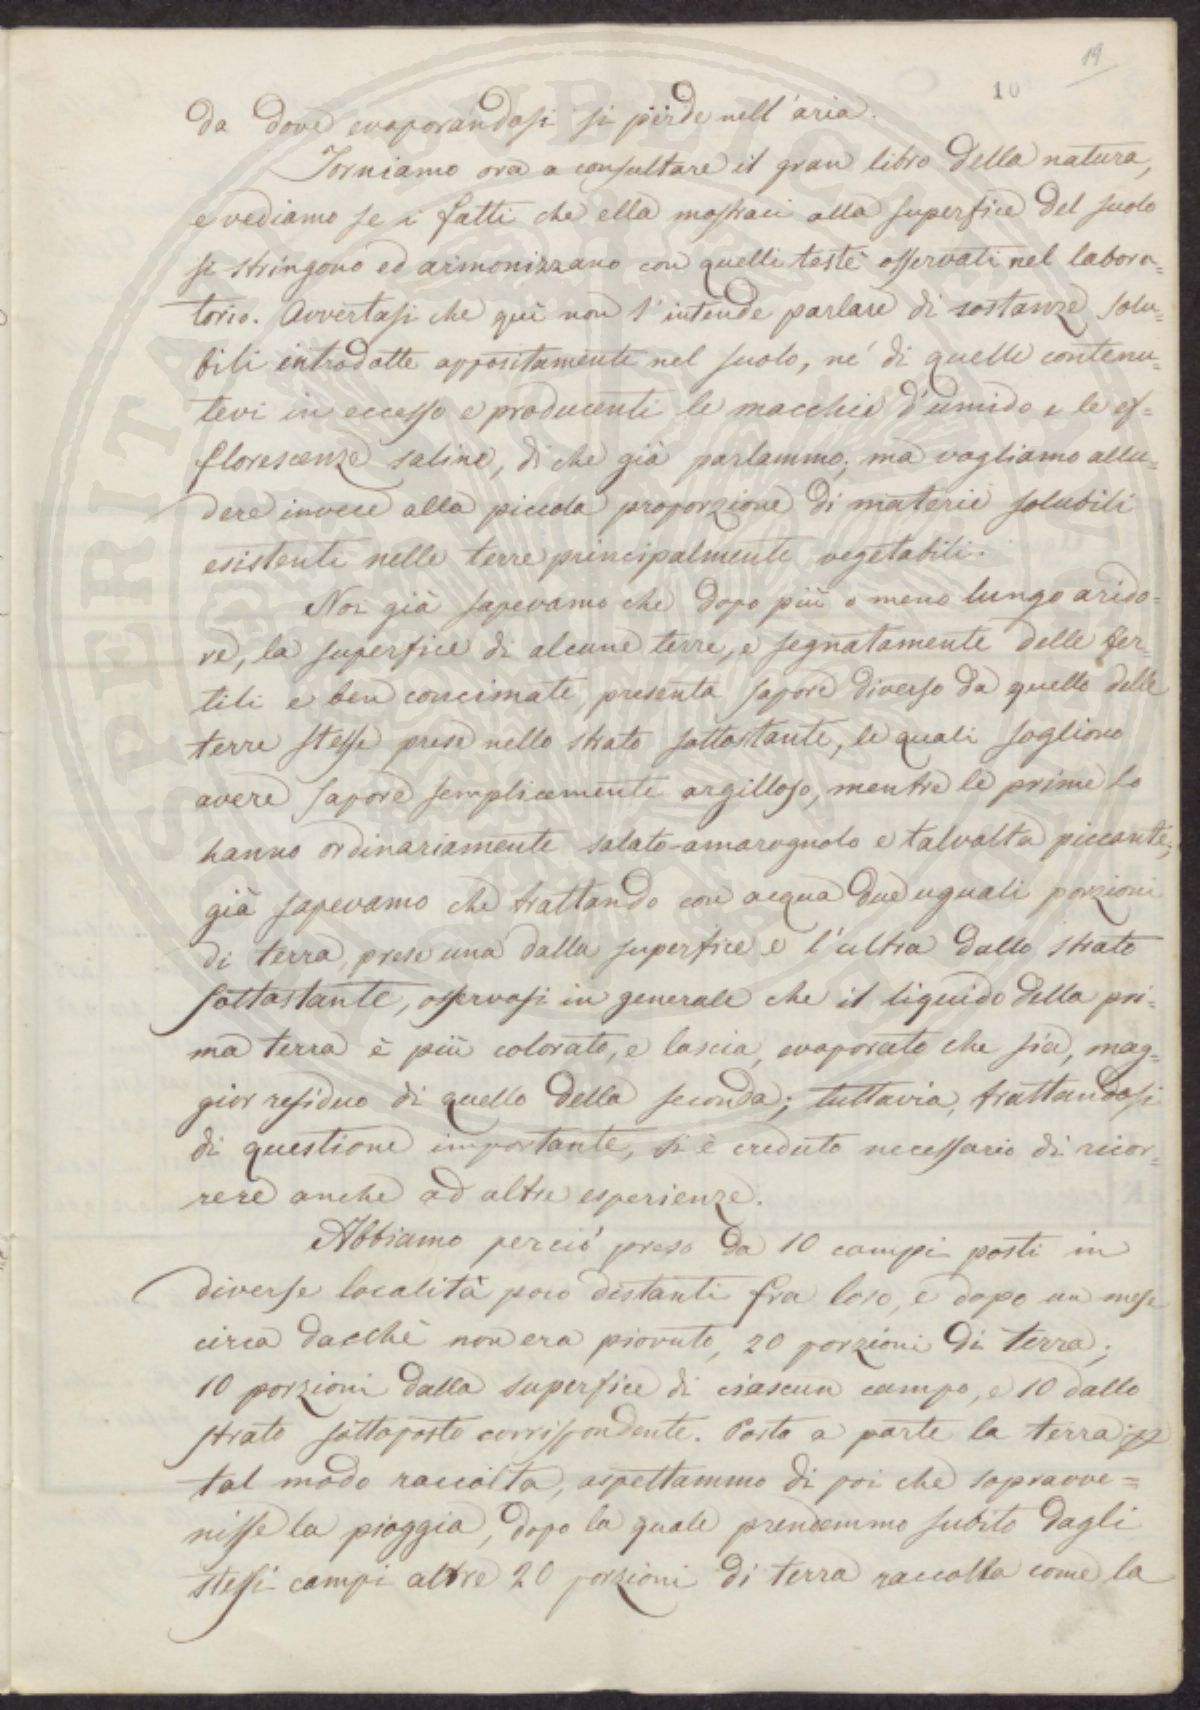 19
10
da dove evaporandosi si perde nell'aria.
Torniamo ora a consultare il gran libro della natura,
e vediamo se i fatti che ella mostraci alla superfice del suolo
si stringono ed armonizzano con quelli testè osservati nel labora=
torio. Avvertasi che quì non s'intende parlare di sostanze solu=
bili introdotte appositamente nel suolo, nè di quelle contenu=
tevi in eccesso e producenti le macchie d'umido e le ef=
florescenze saline, di che già parlammo; ma vogliamo allu=
dere invece alla piccola proporzione di materie solubili
esistenti nelle terre principalmente vegetabili.
Noi già sapevamo che dopo più o meno lungo arido=
re, la superfice di alcune terre, e segnatamente delle fer=
tili e ben concimate, presenta sapore diverso da quello delle
terre stesse prese nello strato sottostante, le quali sogliono
avere sapore semplicemente argilloso, mentre le prime lo
hanno ordinariamente salato-amarognolo e talvolta piccante;
già sapevamo che trattando con acqua due uguali porzioni
di terra, prese una dalla superfice e l'altra dallo strato
sottostante, osservasi in generale che il liquido della pri=
ma terra è più colorato, e lascia, evaporato che sia, mag=
gior residuo di quello della seconda; tuttavia, trattandosi
di questione importante, si è creduto necessario di ricor=
rere anche ad altre esperienze.
Abbiamo perciò preso da 10 campi posti in
diverse località poco distanti fra loro, e dopo un mese
circa dacchè non era piovuto, 20 porzioni di terra;
10 porzioni dalla superfice di ciascun campo, e 10 dallo
strato sottoposto corrispondente. Posta a parte la terra in
tal modo raccolta, aspettammo di poi che sopravve=
nisse la pioggia, dopo la quale prendemmo subito dagli
stessi campi altre 20 porzioni di terra raccolta come la
SPERITAS PUBLICA